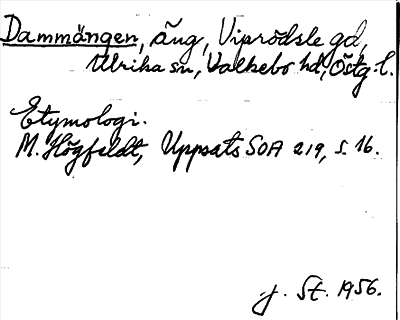 Dammängen, äng, Viprödsle gd,
Ulrika sn, Valkebo hd, Östg. l.
Etymologi.
M. Högfeldt, Uppsats SOA 219, s. 16.
J. St. 1956.